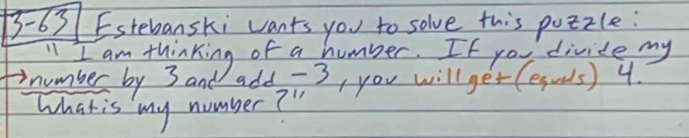 3-63 Estebanski wants you to solve this puzzle:
" I am thinking of a number. If you divide my
→number by 3 and add -3, you will get (equals) 4.
What is my number?"